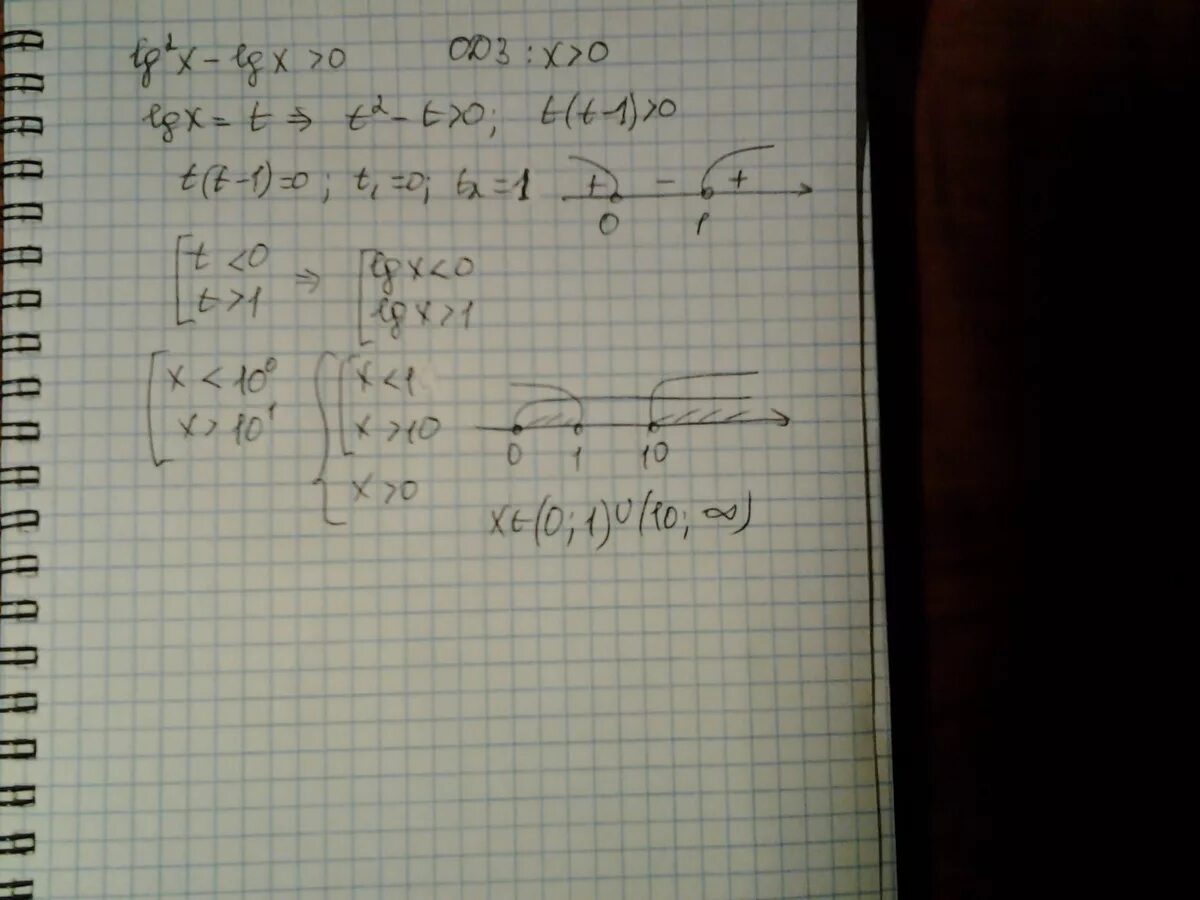 lg²x - lgx > 0 ОДЗ: x>0
lgx = t ⇒ t² - t>0; t(t-1)>0
t(t-1)=0; t₁=0; t₂=1 + - +
0 1
[t <0 ⇒ [lgx<0
t>1 lgx>1
[x < 10⁰ {[x<1
x > 10¹ x>10
0 1 10
x>0
x∈(0; 1)∪(10; ∞)